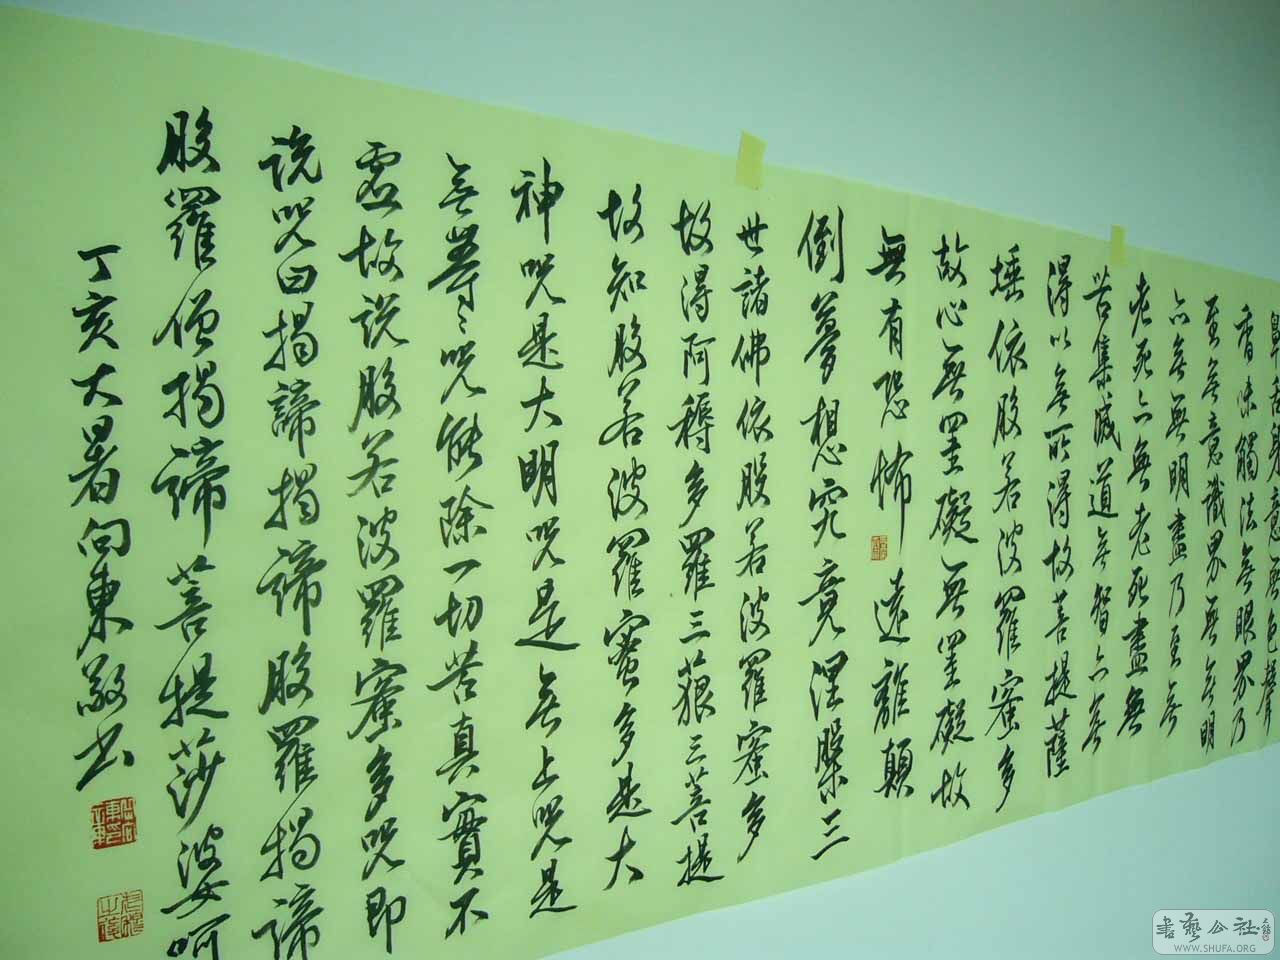 鼻舌身意無色聲
香味觸法無眼界乃
至無意識界無無明
亦無無明盡乃至無
老死亦無老死盡無
苦集滅道無智亦無
得以無所得故菩提薩
埵依般若波羅蜜多
故心無罣礙無罣礙故
無有恐怖遠離顛
倒夢想究竟涅槃三
世諸佛依般若波羅蜜多
故得阿耨多羅三藐三菩提
故知般若波羅蜜多是大
神咒是大明咒是無上咒是
無等々咒能除一切苦真實不
虛故說般若波羅蜜多咒即
說咒曰揭諦揭諦般羅揭諦
般羅僧揭諦菩提莎婆呵
丁亥大暑向東敬书
書藝公社
WWW.SHUFA.ORG